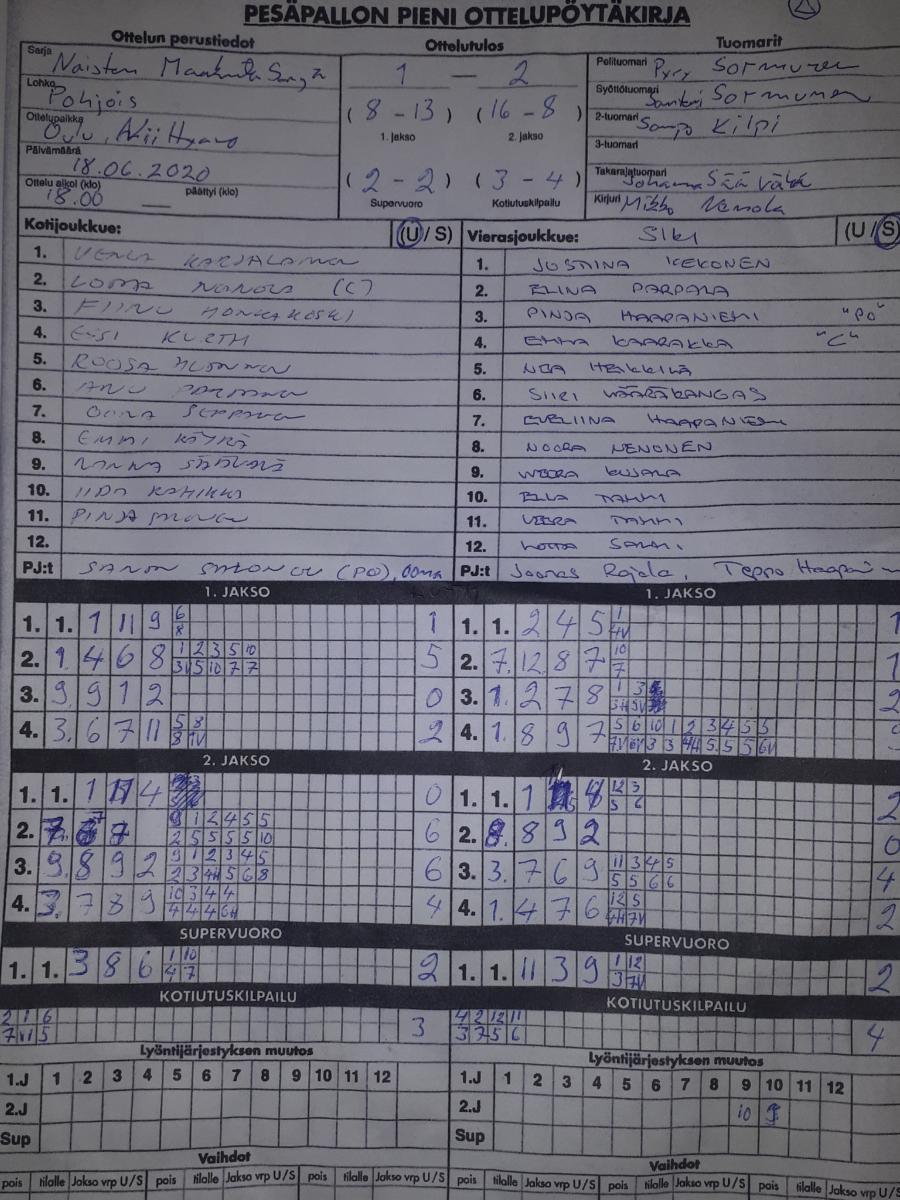 PESÄPALLON PIENI OTTELUPÖYTÄKIRJA
Ottelun perustiedot
Ottelutulos
Tuomarit
Sarja Naisten
Lohko Pohjois
Ottelupaikka Oulu,
Päivämäärä 18.06.2020
Ottelu alkoi (klo) 18.00 päättyi (klo)
1 — 2
(8 - 13) (16 - 8)
1. jakso 2. jakso
(2 - 2) (3 - 4)
Supervuoro Kotiutuskilpailu
Pelituomari Pyry Sormunen
Syöttötuomari Sormunen
2-tuomari Sampo Kilpi
3-tuomari
Takarajatuomari Johanna Säävälä
Kirjuri Mikko
Kotijoukkue: (U / S)
1. VENLA KARJALAINEN
2. (C)
3. HONKAKOSKI
4. ESSI KURTH
5. ROOSA
6. ANU
7. OONA SEPPÄNEN
8. EMMI KÄYRÄ
9. SÄÄVÄLÄ
10. IIDA
11. PINJA
12.
PJ:t (PO),
Vierasjoukkue: Siki (U / S)
1. JOSTIINA KEKONEN
2. ELINA PARPALA
3. PINJA HAAPANIEMI "PO"
4. EMMA KAARAKKA "C"
5. NEA HEIKKILÄ
6. SIIRI VÄÄRÄKANGAS
7. EVELIINA HAAPANIEMI
8. NOORA NENONEN
9. VEERA KUJALA
10. ELLA TAMMI
11. VEERA TAMMI
12. LOTTA SALMI
PJ:t Joonas Rajala, Teppo
1. JAKSO
1. 1. 1 11 9 6 1
8
2. 1. 4 6 8 1 2 3 5 10 5
3V 5 10 7 7
3. 9. 9 1 2 0
4. 3. 6 7 11 5 8 2
8 1V
1. JAKSO
1. 1. 2 4 5 1 1
4V
2. 7. 12 8 7 10 1
7
3. 1. 2 7 8 1 3 2
3H 5V
4. 1. 8 9 7 5 6 10 1 2 3 4 5 5
7V 6V 3 3 4H 5 5 5 6V
2. JAKSO
1. 1. 1 11 4 0
2. 1 2 4 5 5 6
2 5 5 5 5 10
3. 9. 8 9 2 9 1 2 3 4 5 6
2 3 4H 5 6 8
4. 3. 7 8 9 10 3 4 4 4
4 4 4 6H
2. JAKSO
1. 1. 1 12 3 2
3 6
2. 8. 8 9 2 0
3. 3. 7 6 9 11 3 4 5 4
5 5 6 6
4. 1. 4 7 6 12 5 2
4H 7V
SUPERVUORO
1. 1. 3 8 6 1 10 2
4 7
SUPERVUORO
1. 1. 11 3 9 1 12 2
3 7V
KOTIUTUSKILPAILU
2 1 6 3
7 11 5
KOTIUTUSKILPAILU
4 2 12 11 4
3 7 5 6
Lyöntijärjestyksen muutos
1.J 1 2 3 4 5 6 7 8 9 10 11 12
2.J
Sup
Lyöntijärjestyksen muutos
1.J 1 2 3 4 5 6 7 8 9 10 11 12
2.J 10 9
Sup
Vaihdot
pois tilalle Jakso vrp U/S pois tilalle Jakso vrp U/S pois tilalle Jakso vrp U/S
Vaihdot
pois tilalle Jakso vrp U/S pois tilalle Jakso vrp U/S pois tilalle Jakso vrp U/S